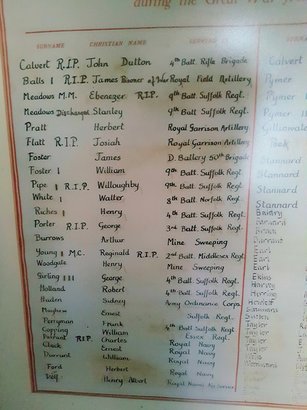 during the Great War
SURNAME CHRISTIAN NAME
Calvert R.I.P. John Dutton 4th Batt. Rifle Brigade
Balls I R.I.P. James Prisoner of War Royal Field Artillery
Meadows M.M. Ebenezer R.I.P. 9th Batt. Suffolk Regt.
Meadows Discharged Stanley 9th Batt. Suffolk Regt.
Pratt Herbert Royal Garrison Artillery
Flatt R.I.P. Josiah Royal Garrison Artillery
Foster James D. Battery 50th Brigade
Foster I William 9th Batt. Suffolk Regt.
Pipe II R.I.P. Willoughby 9th Batt. Suffolk Regt.
White I Walter 8th Batt. Norfolk Regt.
Riches I Henry 4th Batt. Suffolk Regt.
Porter R.I.P. George 3rd Batt. Suffolk Regt.
Burrows Arthur Mine Sweeping
Young II M.C. Reginald R.I.P. 2nd Batt. Middlesex Regt.
Woodgate Henry Mine Sweeping
Girling III George 4th Batt. Suffolk Regt.
Holland Robert 4th Batt. Suffolk Regt.
Sidney Army Ordinance Corps.
Mayhew Ernest Suffolk Regt.
Perryman Frank 4th Batt. Suffolk Regt.
Copping William Essex Regt.
Durrant R.I.P. Charles Royal Navy
Ernest Royal Navy
Durrant William Royal Navy
Ford Herbert Royal Navy
Self Henry Albert Royal Naval Air Service
SURNAME
Calver
Pymer
Pymer
Gillowa
Peck
Stannard
Stannard
Stannard
Stannard
Earl
Earl
Taylor
Taylor